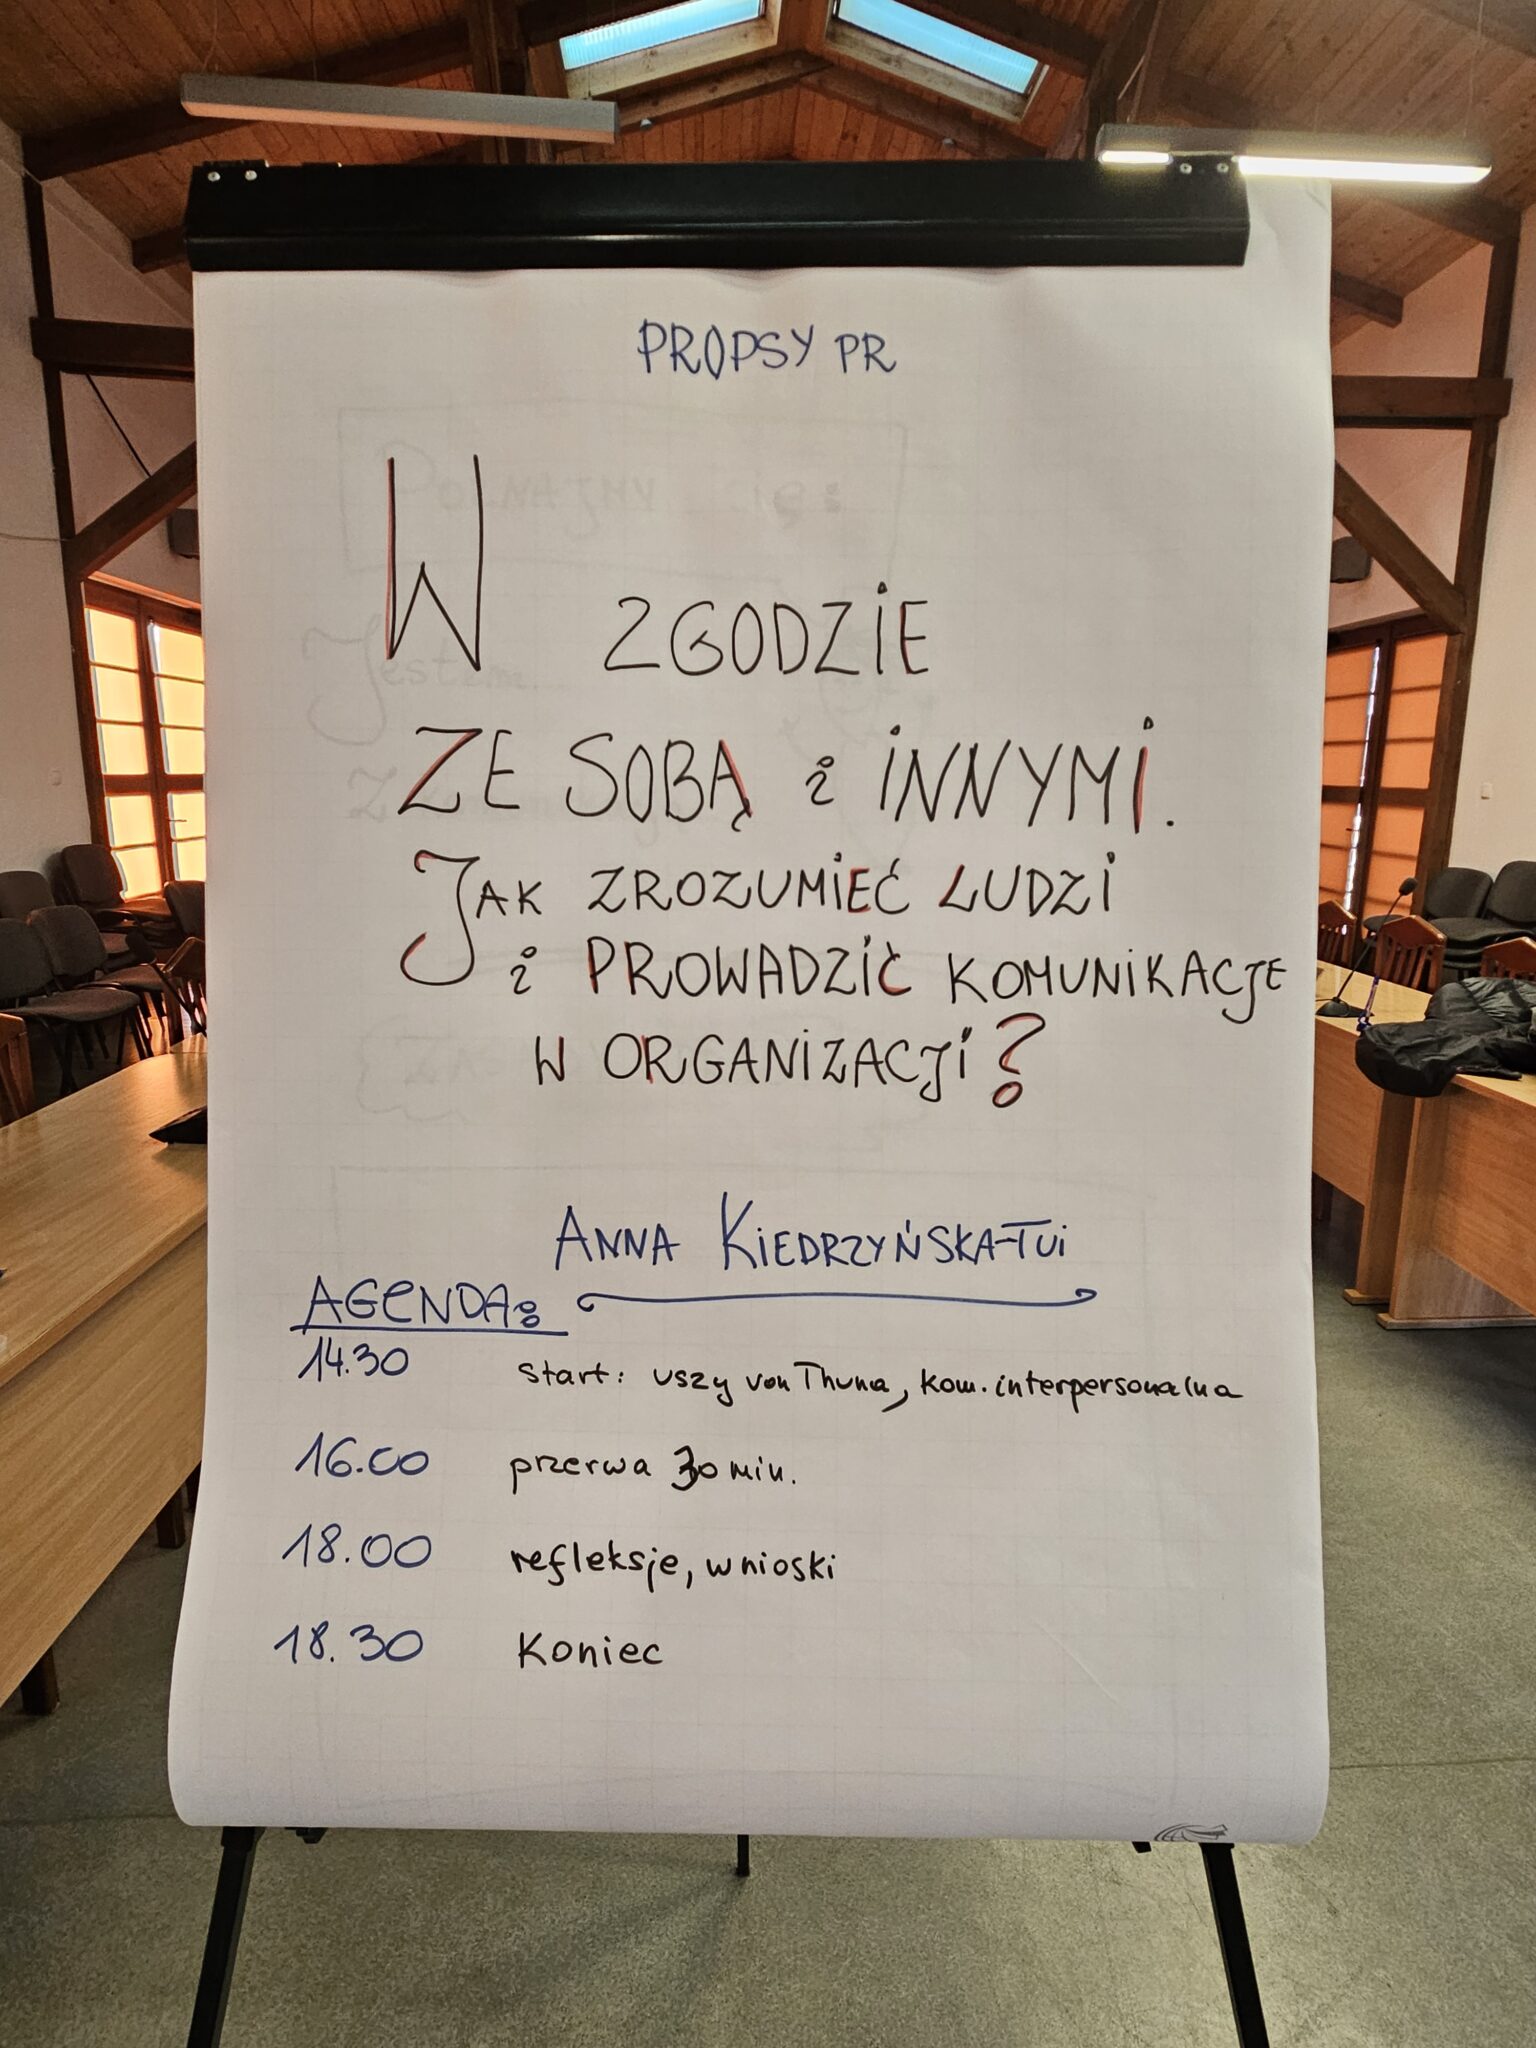 PROPSY PR
W ZGODZIE
ZE SOBĄ i INNYMI.
JAK ZROZUMIEĆ LUDZI
i PROWADZIĆ KOMUNIKACJE
W ORGANIZACJI?
ANNA KIEDRZYŃSKA-TUI
AGENDA:
14.30 start: uszy von Thuna, kom. interpersonalna
16.00 przerwa 30 min.
18.00 refleksje, wnioski
18.30 Koniec